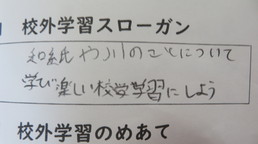 校外学習スローガン
和紙や川のことについて
学び楽しい校学学習にしよう
校外学習のめあて